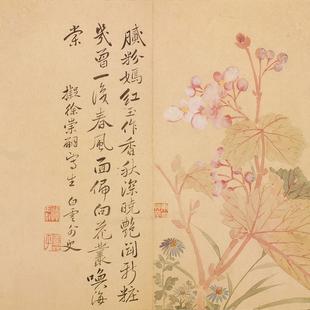 膩粉嫣紅玉作香秋深曉艷鬪新粧
幾曾一春風面偏向花叢喚海
棠 擬徐崇嗣寫生 白雲外史